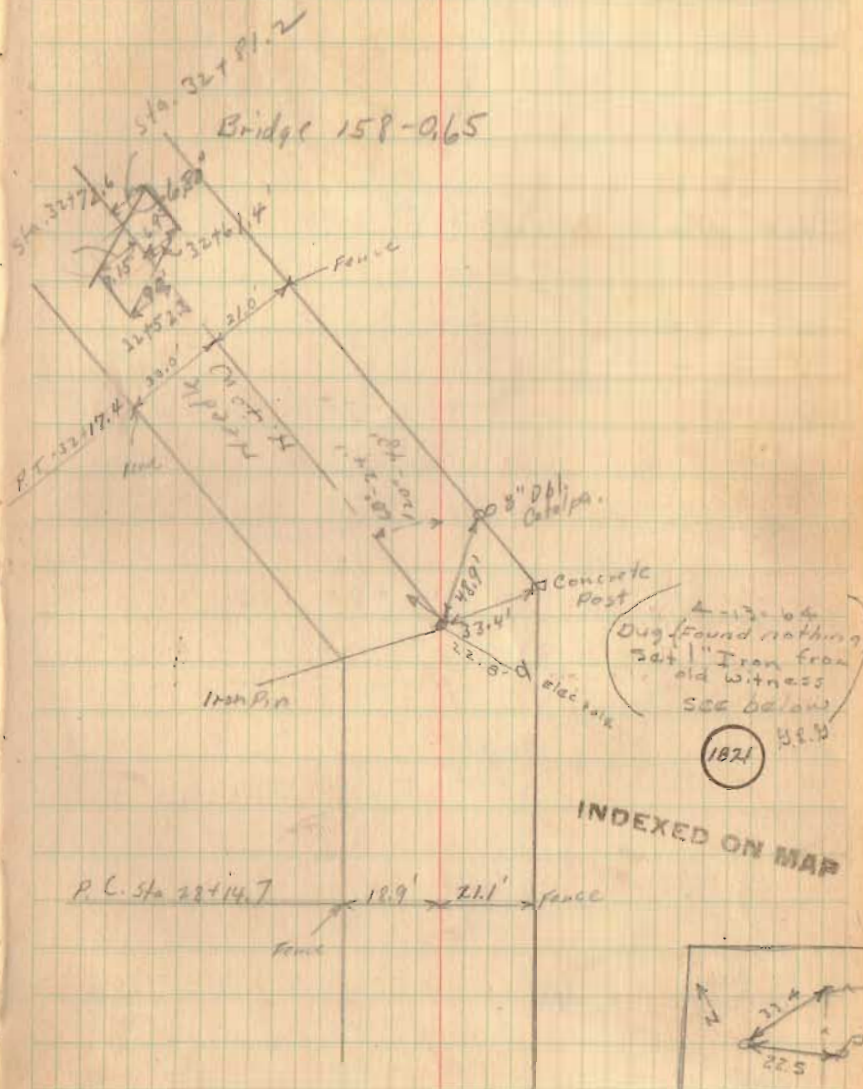 Sta. 32+81.2
Bridge 158-0.65
Sta. 32+72.6
32+61.4'
Fence
21.0'
20.0'
P.T. 32+17.4
8" Dbl.
Catalpa.
48.9'
Concrete
Post
33.4'
22.8
elec pole
Iron Pin
4-13-64
Dug Found nothing
Set 1" Iron from
old witness
see below
1821
INDEXED ON MAP
P.C. Sta 28+14.7
18.9'
21.1'
Fence
Fence
33.4
22.5